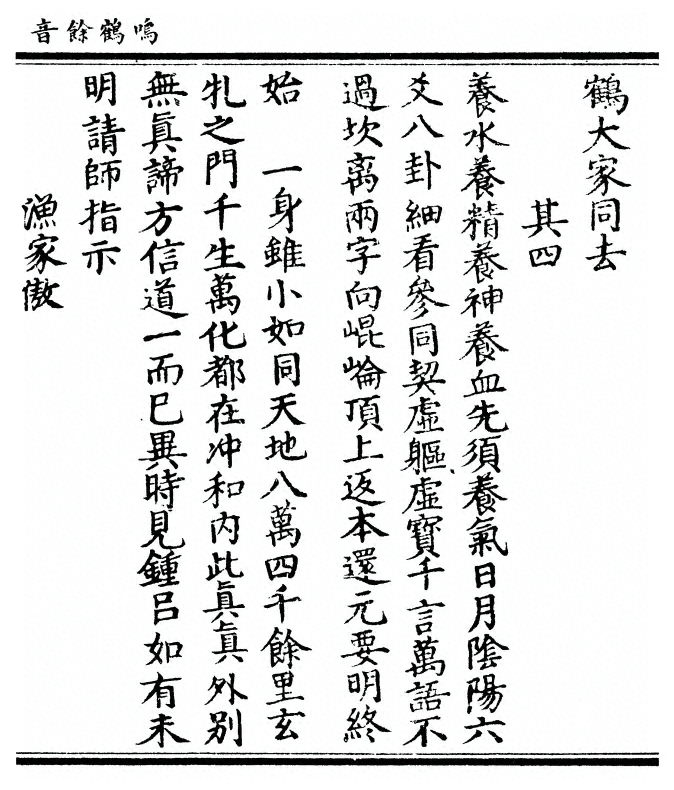 鳴鶴餘音
鶴大家同去
其四
養水養精養神養血先須養氣日月陰陽六
爻八卦細看參同契虛軀虛寶千言萬語不
過坎离兩字向崐崘頂上返本還元要明終
始　一身雖小如同天地八萬四千餘里玄
牝之門千生萬化都在冲和内此眞眞外別
無眞諦方信道一而巳異時見鍾呂如有未
明請師指示
漁家傲